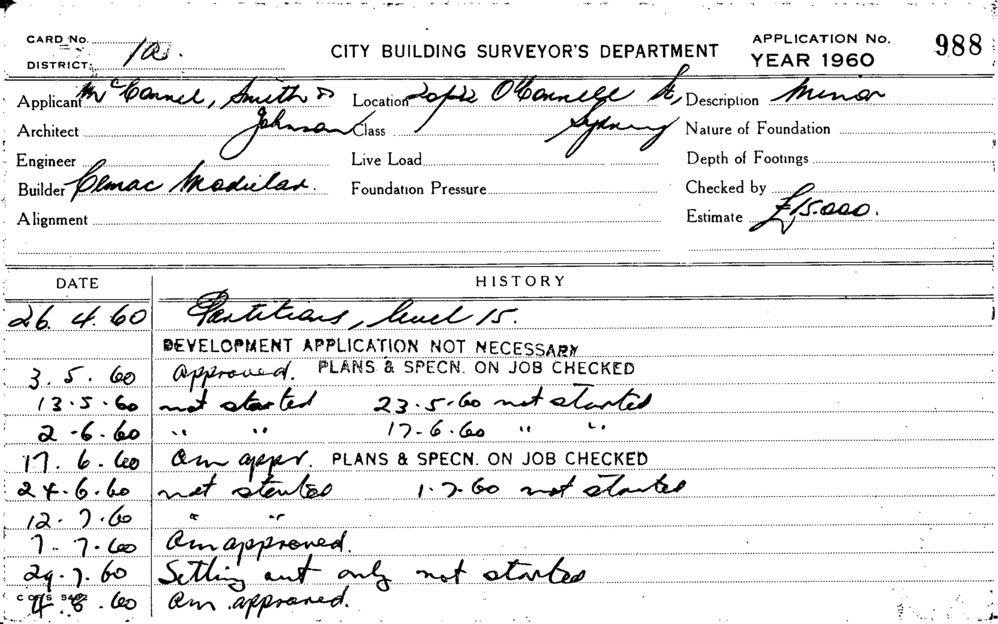 CARD No. CITY BUILDING SURVEYOR'S DEPARTMENT APPLICATION No. 988
DISTRICT: 1a YEAR 1960
Applicant McConnel, Smith & Location O'Connell St, Description Minor
Architect Johnson Class Sydney Nature of Foundation
Engineer Live Load Depth of Footings
Builder Cemac Modular. Foundation Pressure Checked by
Alignment Estimate £15.000.
DATE HISTORY
26. 4. 60 Partitions, level 15.
DEVELOPMENT APPLICATION NOT NECESSARY
3. 5. 60 approved. PLANS & SPECN. ON JOB CHECKED
13.5.60 not started 23.5.60 not started
2.6.60 " " 17.6.60 " "
17. 6. 60 am appr. PLANS & SPECN. ON JOB CHECKED
24.6.60 not started 1.7.60 not started
12.7.60 " "
7.7.60 am approved.
29.7.60 Setting out only not started
4.8.60 am approved.